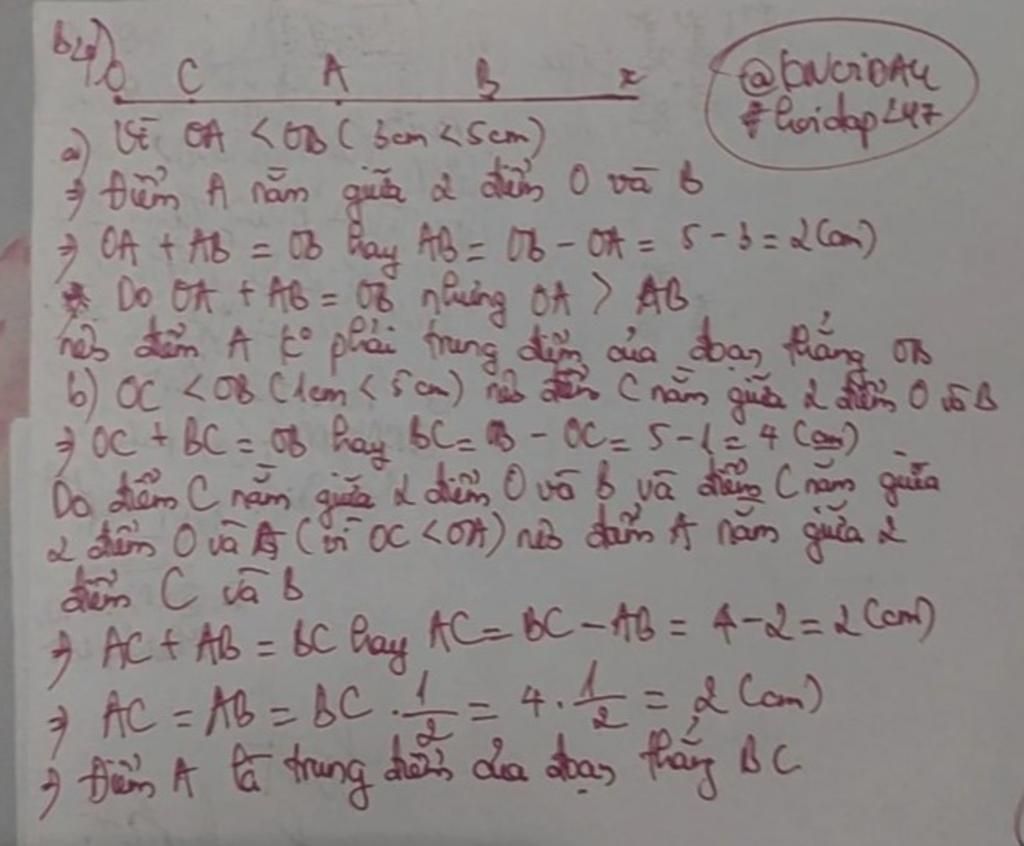 b4)
O C A B x
@
#hoidap247
a) Vì OA < OB (3cm < 5cm)
⇒ Điểm A nằm giữa 2 điểm O và B
⇒ OA + AB = OB hay AB = OB - OA = 5 - 3 = 2 (cm)
* Do OA + AB = OB nhưng OA > AB
nên điểm A k° phải trung điểm của đoạn thẳng OB
b) OC < OB (1cm < 5cm) nên điểm C nằm giữa 2 điểm O và B
⇒ OC + BC = OB hay BC = OB - OC = 5 - 1 = 4 (cm)
Do điểm C nằm giữa 2 điểm O và B và điểm C nằm giữa
2 điểm O và A (vì OC < OA) nên điểm A nằm giữa 2
điểm C và B
⇒ AC + AB = BC hay AC = BC - AB = 4 - 2 = 2 (cm)
⇒ AC = AB = BC . 1/2 = 4 . 1/2 = 2 (cm)
⇒ Điểm A là trung điểm của đoạn thẳng BC